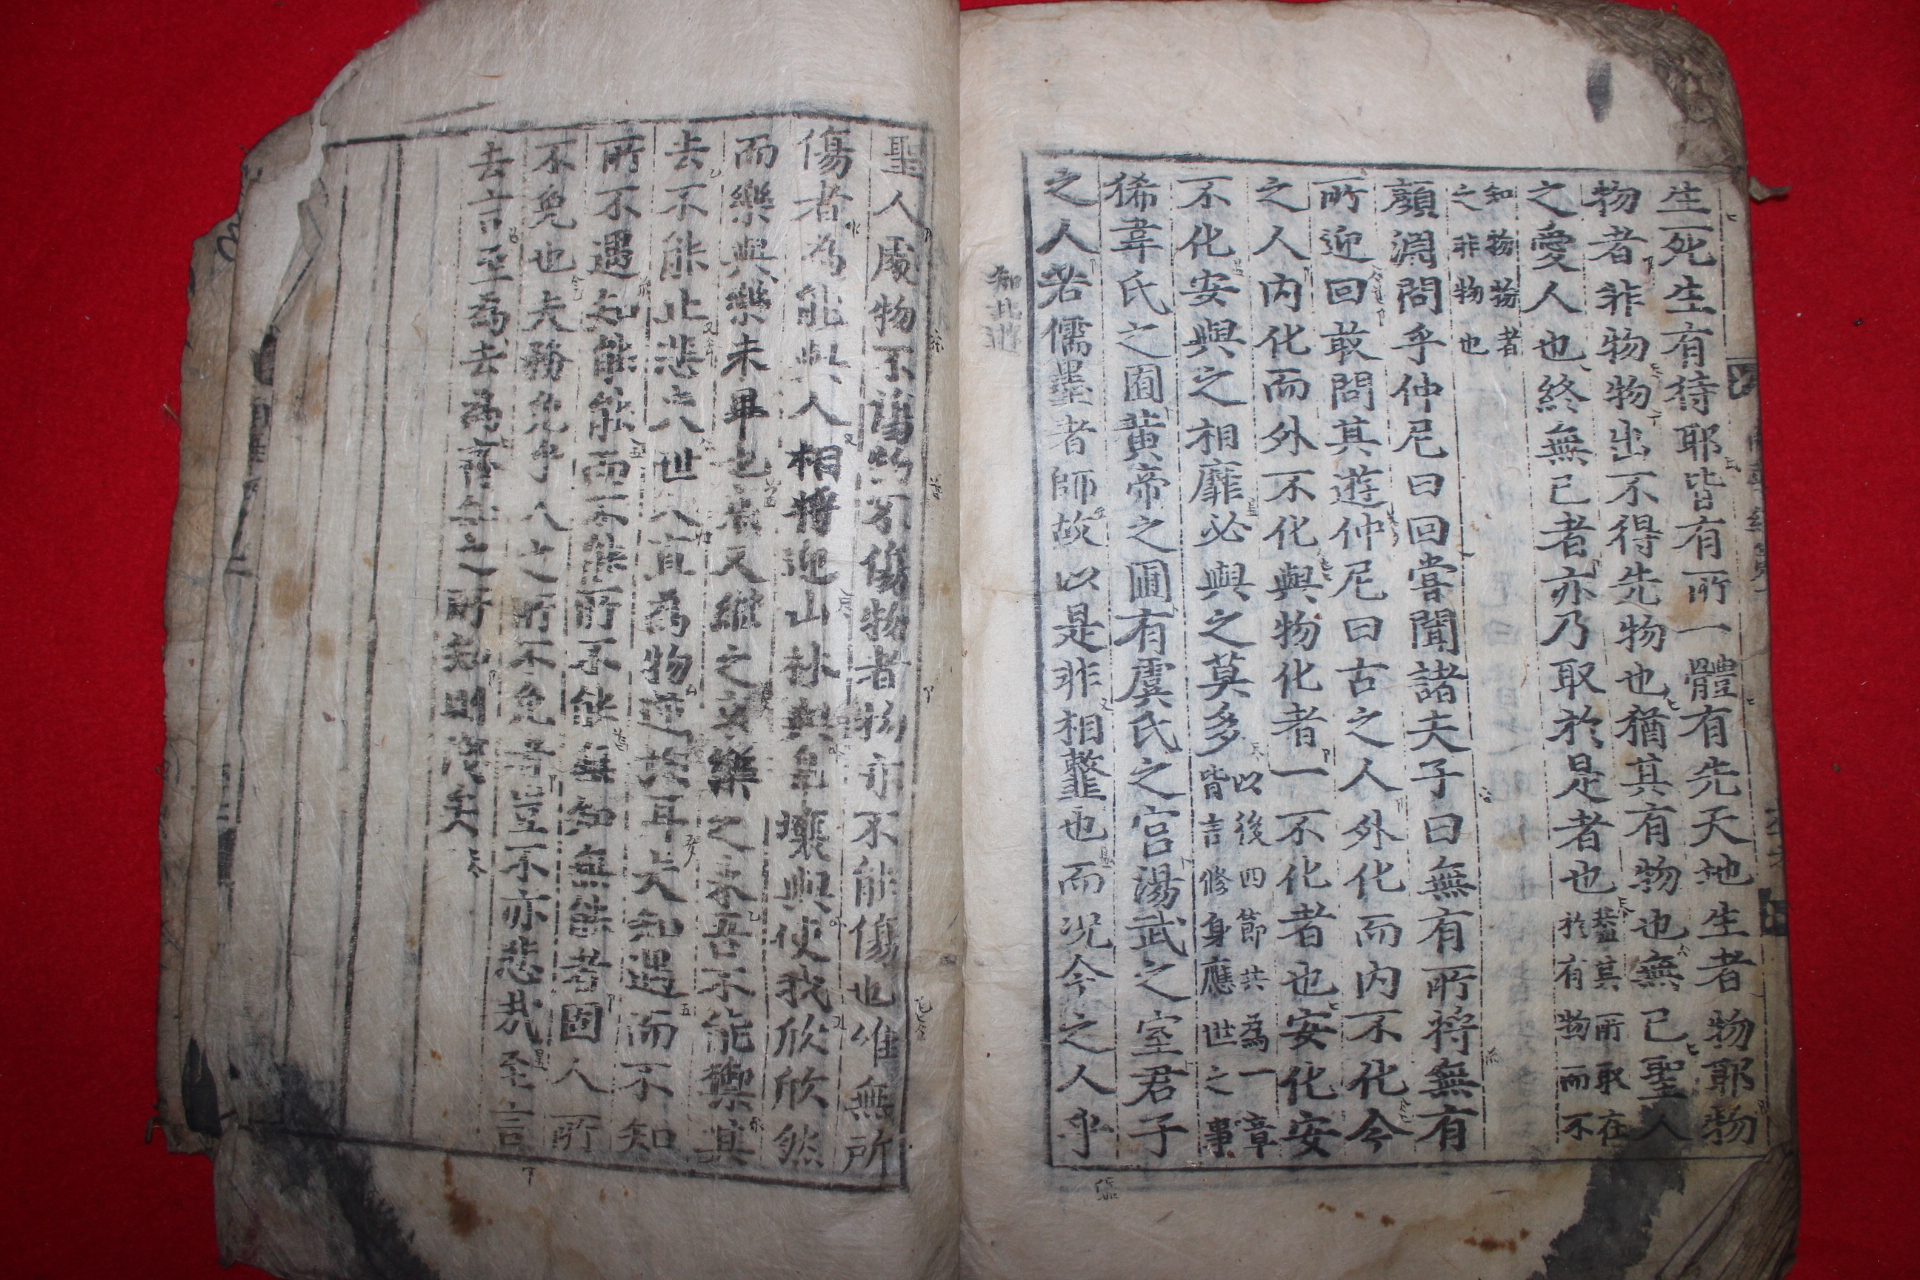 生死生有待耶皆有所一體有先天地生者物耶物
物者非物物出不得先物也猶其有物也無已聖人
之愛人也終無已者亦乃取於是者也蓋其所取在於有物而不
知物物者之非物也
顏淵問乎仲尼曰回嘗聞諸夫子曰無有所將無有
所迎回敢問其遊仲尼曰古之人外化而內不化今
之人內化而外不化與物化者一不化者也安化安
不化安與之相靡必與之莫多以後四節共為一章皆言修身應世之事
狶韋氏之囿黃帝之圃有虞氏之宮湯武之室君子
之人若儒墨者師故以是非相𩐋也而況今之人乎
知北遊
聖人處物不傷物不傷物者物亦不能傷也唯無所
傷者為能與人相將迎山林與皐壤與使我欣欣然
而樂與樂未畢也哀又繼之哀樂之來吾不能禦其
去不能止悲夫世人直為物逆旅耳夫知遇而不知
所不遇知能能而不能所不能無知無能者固人所
不免也夫務免乎人之所不免者豈不亦悲哉至言
去言至為去為齊知之所知則淺矣